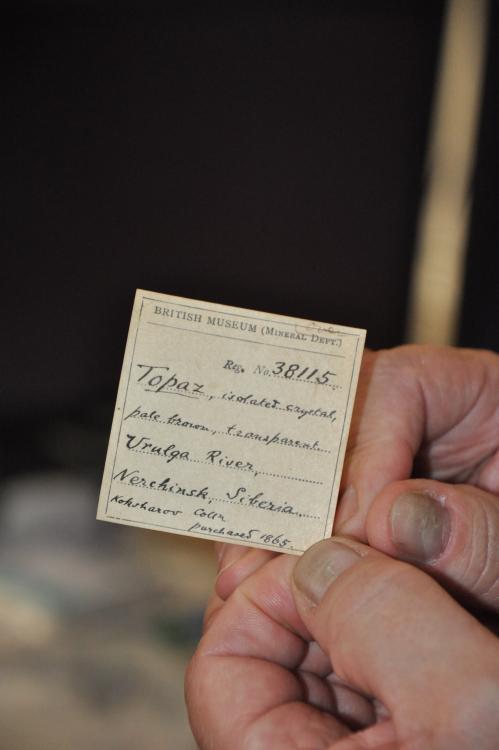 (over)
BRITISH MUSEUM (MINERAL DEPT.)
Reg. No. 38115
Topaz, isolated crystal,
pale brown, transparent
Urulga River,
Nerchinsk, Siberia
Koksharov Colln
purchased 1865.